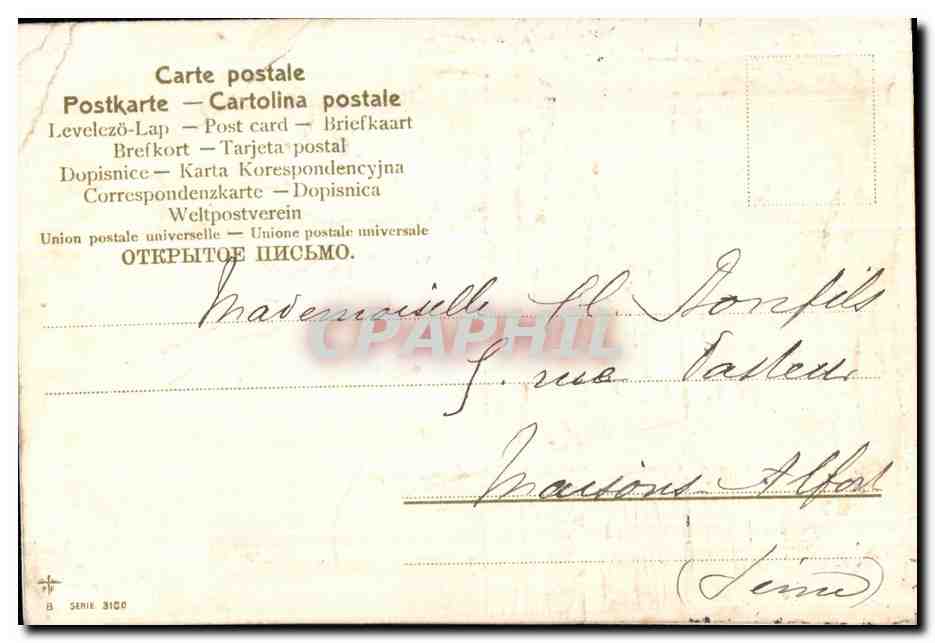 Carte postale
Postkarte — Cartolina postale
Levelezö-Lap — Post card — Briefkaart
Brefkort — Tarjeta postal
Dopisnice — Karta Korespondencyjna
Correspondenzkarte — Dopisnica
Weltpostverein
Union postale universelle — Unione postale universale
ОТКРЫТОЕ ПИСЬМО.
Mademoiselle Bonfils
CPAPHIL
5. rue Pasteur
Maisons-Alfort
(Seine)
B SERIE 3160